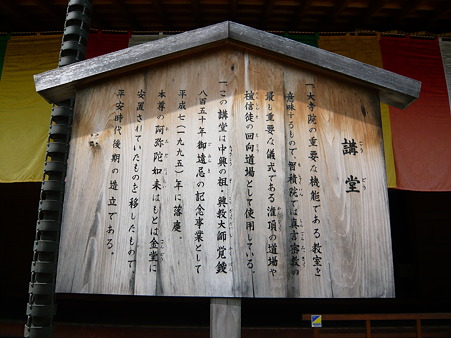 講堂
こうどう
一、本寺院の重要な機能である教室を
意味するもので智積院では真言宗教の
最も重要な儀式である灌頂の道場や
檀信徒の回向道場として使用している。
一、この講堂は中興の祖、興教大師覚鑁
八百五十年御遠忌の記念事業として
平成七(一九九五)年に落慶。
本尊の阿弥陀如来はもとは金堂に
安置されていたものを移したもので
平安時代後期の造立である。